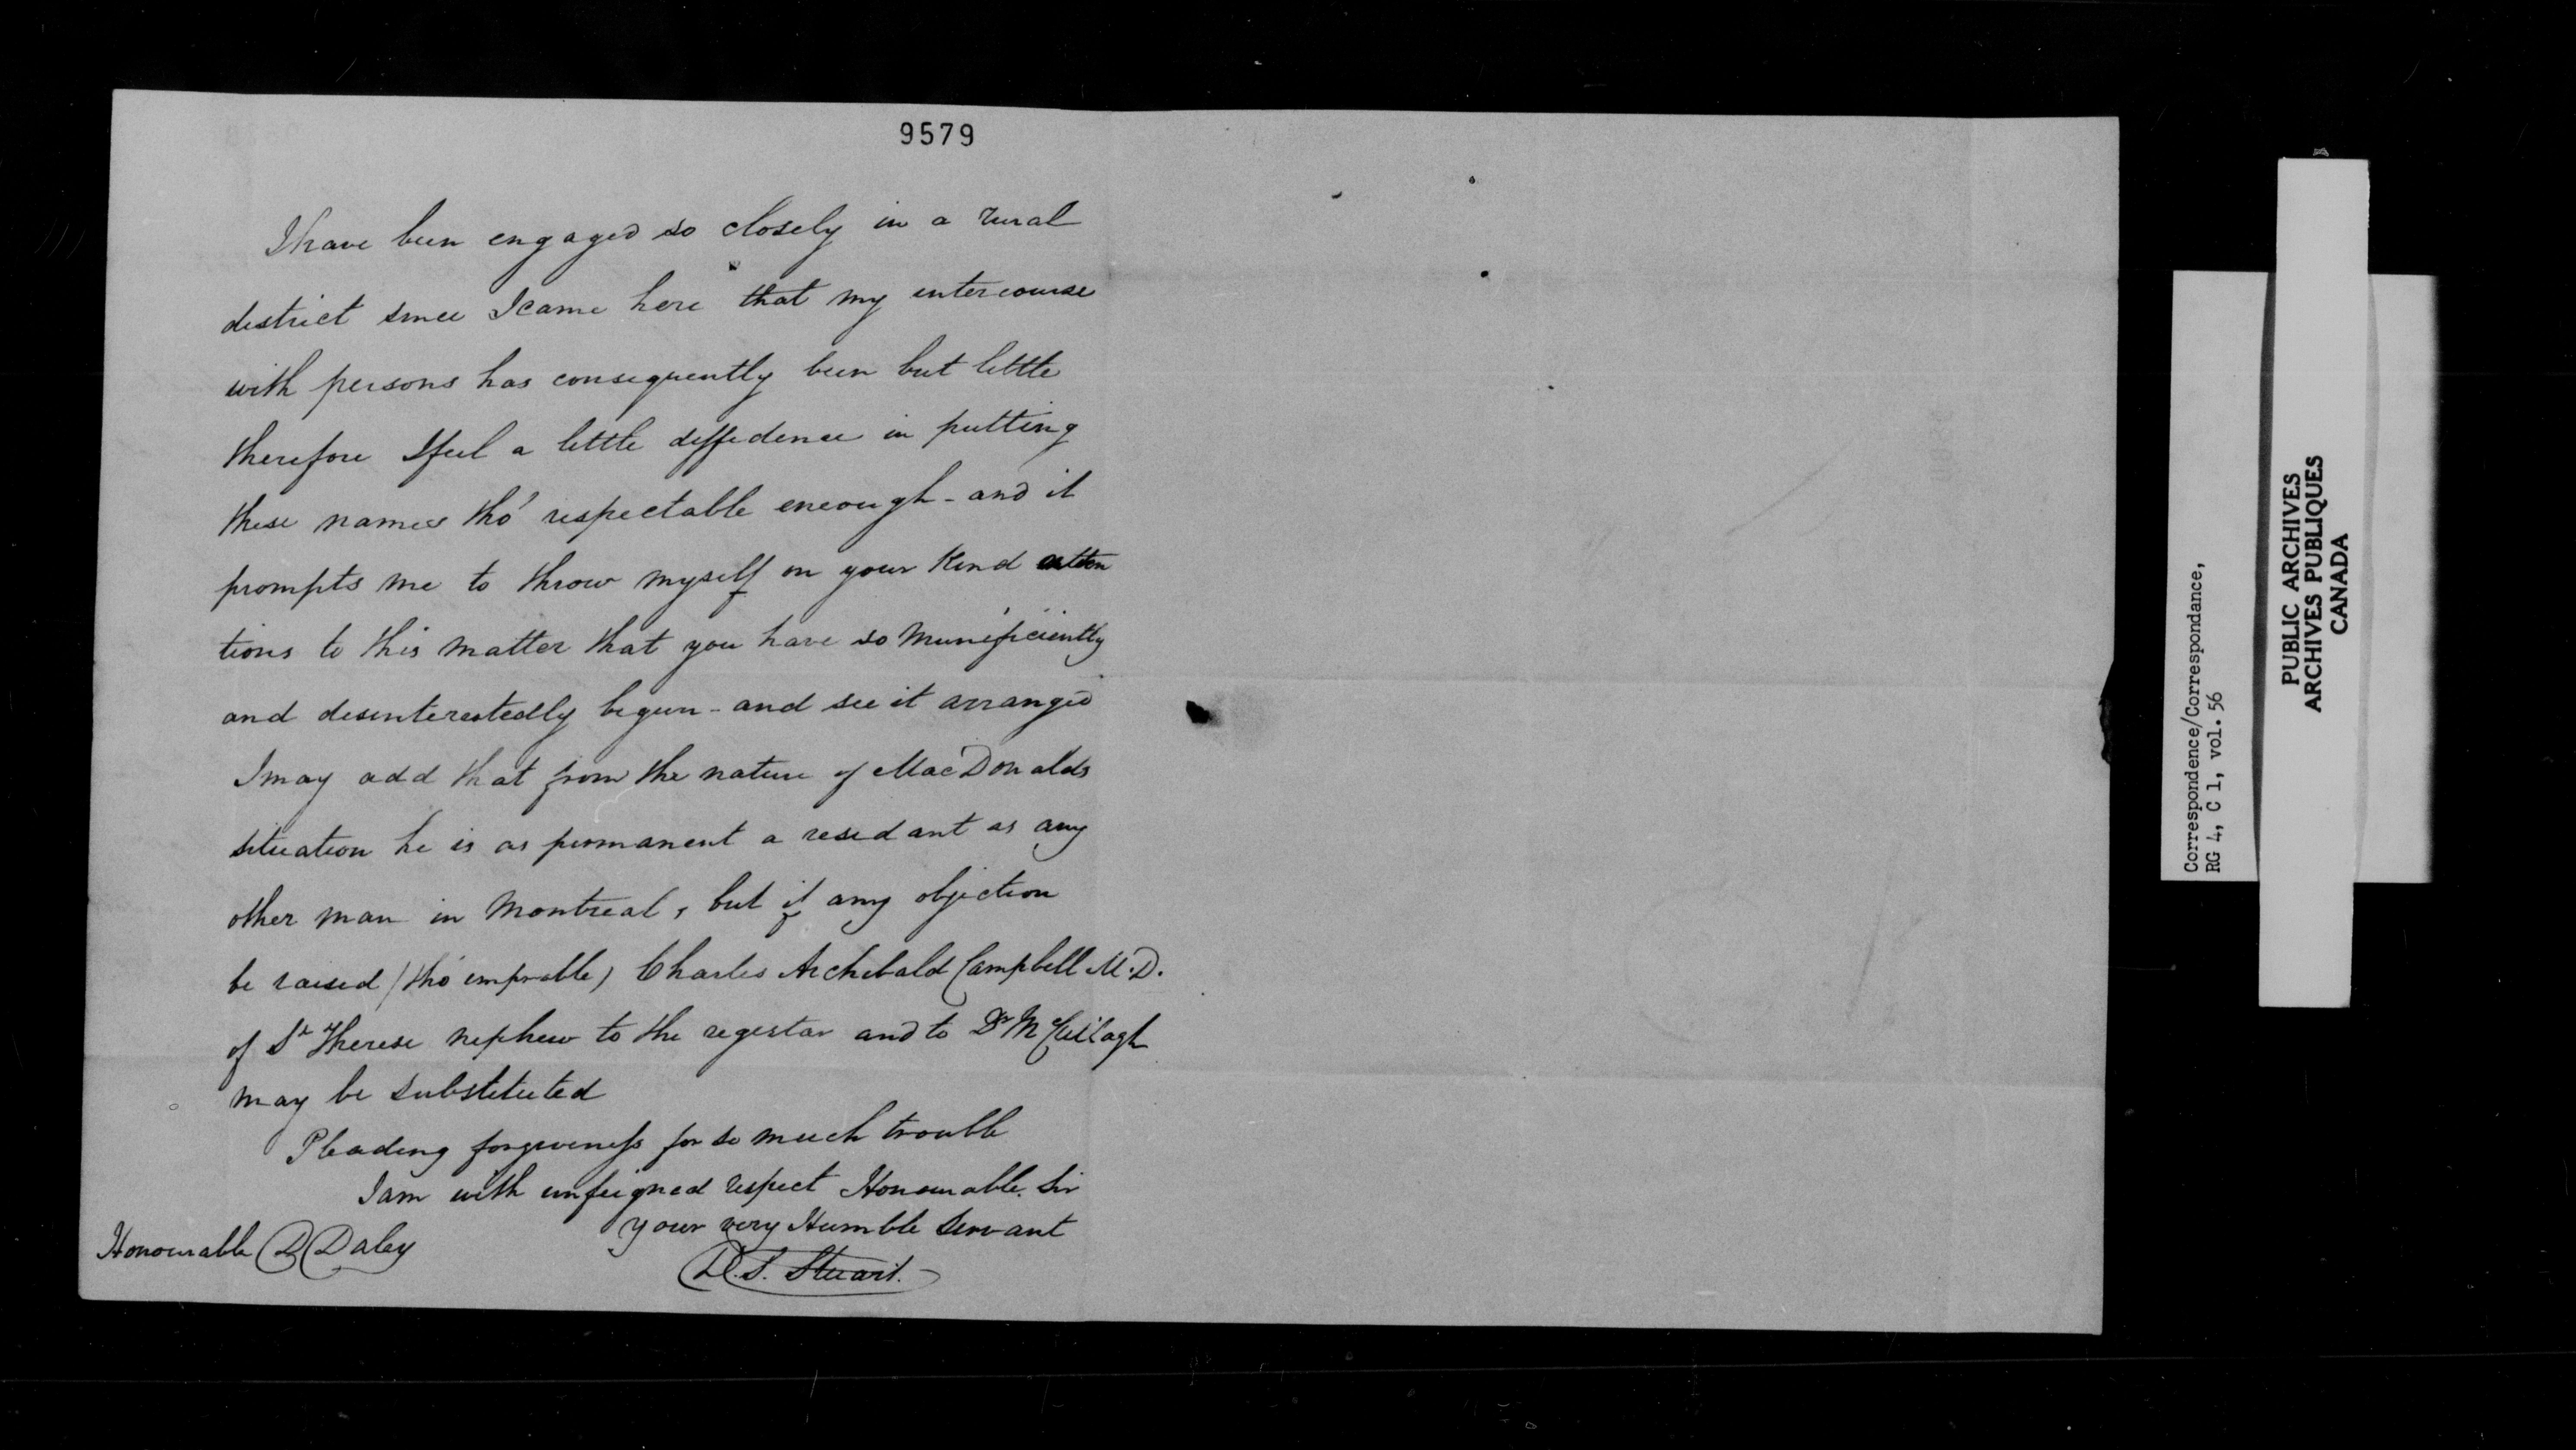 9579
I have been engaged so closely in a rural
district since I came here that my intercourse
with persons has consequently been but little
therefore I feel a little diffidence in putting
these names tho' respectable eneough - and it
prompts me to throw myself on your kind atten
tions to this matter that you have so munificiently
and desinterestedly begun - and see it arranged
I may add that from the nature of MacDonalds
situation he is as permanent a residant as any
other man in Montreal, but if any objection
be raised (tho' imprable) Charles Archibald Campbell M.D.
of St Therese nephew to the registar and to Dr McCullagh
may be substituted
Pleading forgiveness for so much trouble
I am with unfeigned respect Honourable Sir
your very Humble Servant
D. S. Stuart.
Honourable D Daley
Correspondence/Correspondance,
RG 4, C 1, vol. 56
PUBLIC ARCHIVES
ARCHIVES PUBLIQUES
CANADA